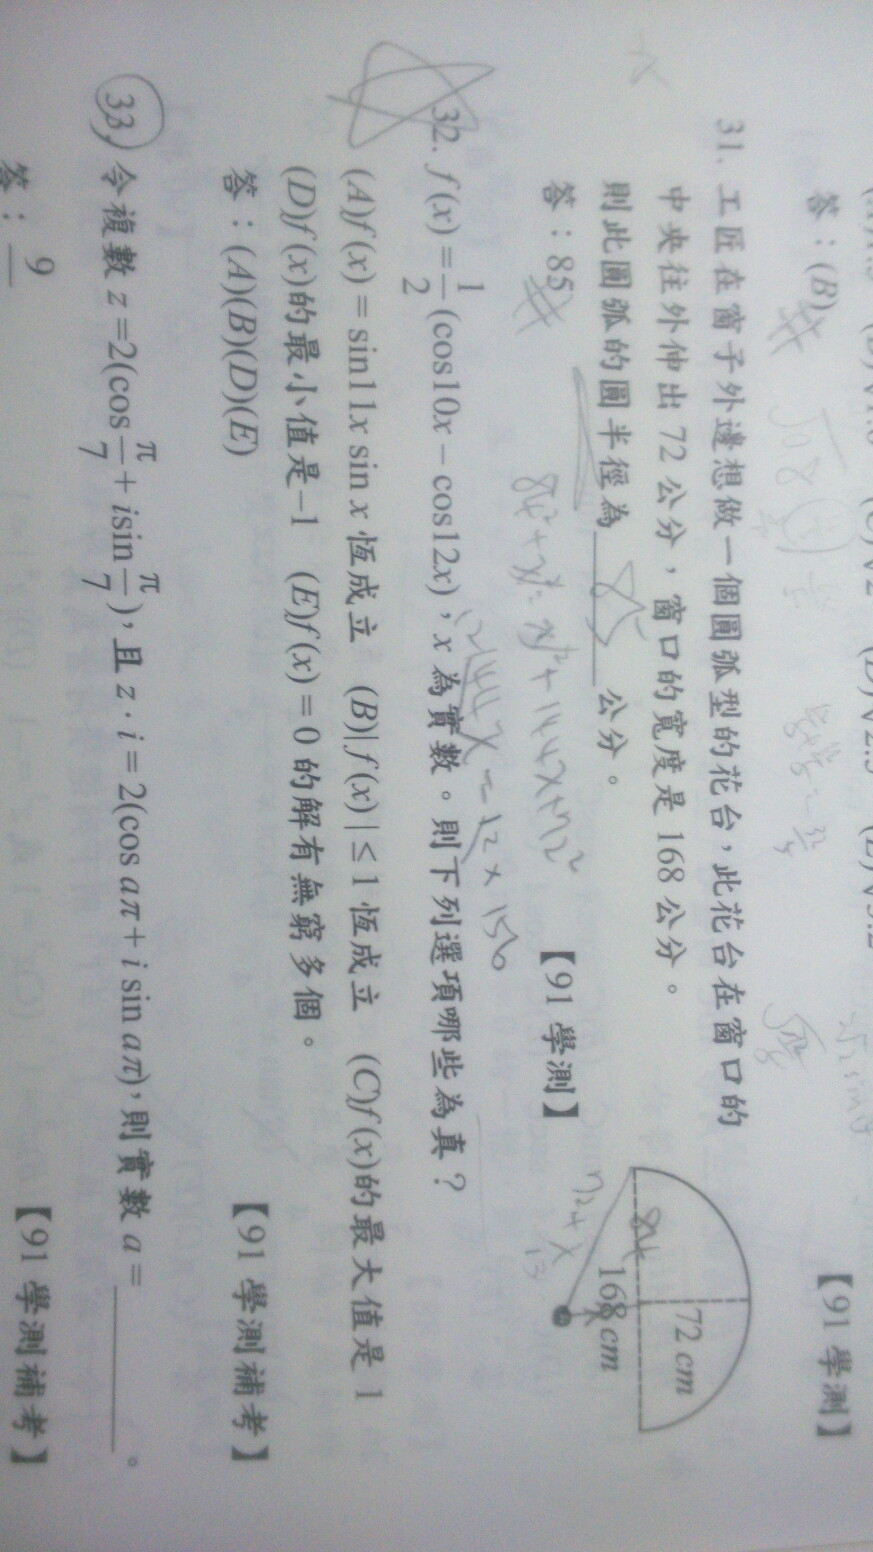 答：(B)
【91 學測】
31. 工匠在窗子外邊想做一個圓弧型的花台，此花台在窗口的
中央往外伸出 72 公分，窗口的寬度是 168 公分。
則此圓弧的圓半徑為 85 公分。
72 cm
168 cm
84
72+x
答：85
【91 學測】
84²+x²=x²+144x+72²
144x=12×156
32. f(x)=1/2(cos10x−cos12x)，x 為實數。則下列選項哪些為真？
(A)f(x)=sin11x sin x 恆成立 (B)|f(x)|≤1 恆成立 (C)f(x)的最大值是 1
(D)f(x)的最小值是−1 (E)f(x)=0 的解有無窮多個。
答：(A)(B)(D)(E)
【91 學測補考】
33. 令複數 z=2(cos π/7+isin π/7)，且 z·i=2(cos aπ+i sin aπ)，則實數 a=＿＿＿。
答：9
【91 學測補考】